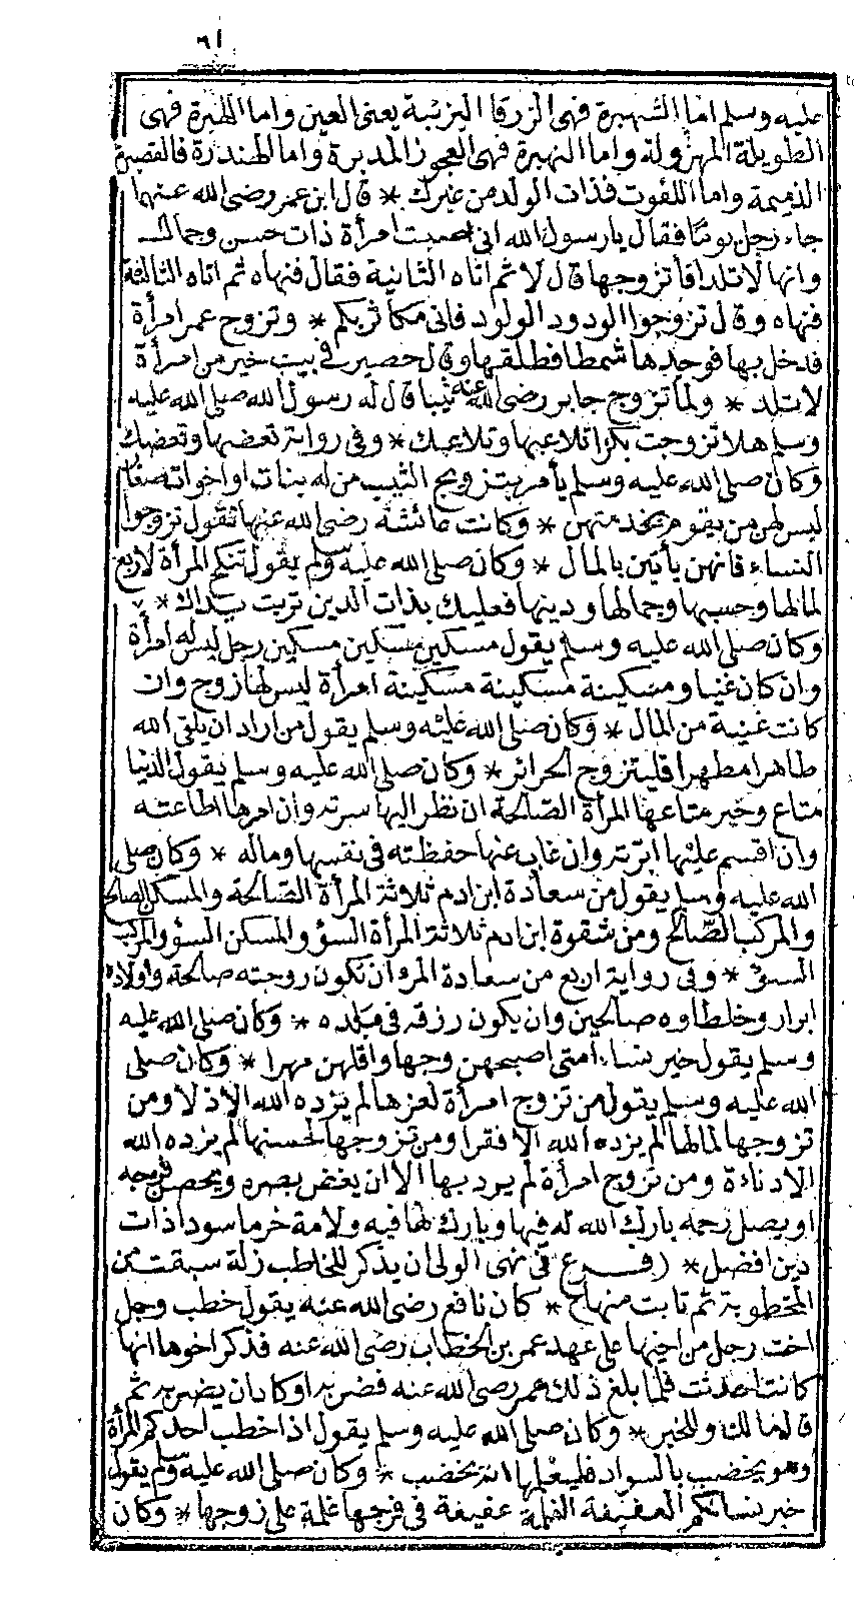 ٦١
عليه وسلم اما الشهبرة فهى الزرقا البزيئة يعنى العين واما اللهبرة فهى
الطويلة المهزولة واما النهبرة فهى العجوز المدبرة واما الهندرة فالقصيرة
الذميمة واما اللفوت فذات الولد من غيرك * قال ابن عمر رضى الله عنهما
جاء رجل يومًا فقال يا رسول الله انى اصبت امرأة ذات حسن وجمال
وانها لا تلد افأتزوجها قال لا ثم اتاه الثانية فقال فنهاه ثم اتاه الثالثة
فنهاه وقال تزوجوا الودود الولود فانى مكاثر بكم * وتزوج عمر امرأة
فدخل بها فوجدها شمطا فطلقها وقال حصير فى بيت خير من امرأة
لا تلد * ولما تزوج جابر رضى الله عنه ثيبا قال له رسول الله صلى الله عليه
وسلم هلا تزوجت بكرا تلاعبها وتلاعبك * وفى رواية تعضها وتعضك
وكان صلى الله عليه وسلم يأمر بتزويج الثيب من له بنات او اخوات صغار
ليس لهن من يقوم بخدمتهن * وكانت عائشة رضى الله عنها تقول تزوجوا
النساء فانهن يأتين بالمال * وكان صلى الله عليه وسلم يقول تنكح المرأة لاربع
لمالها وحسبها وجمالها ودينها فعليك بذات الدين تربت يداك *
وكان صلى الله عليه وسلم يقول مسكين مسكين مسكين رجل ليس له امرأة
وان كان غنيا ومسكينة مسكينة مسكينة امرأة ليس لها زوج وان
كانت غنية من المال * وكان صلى الله عليه وسلم يقول من اراد ان يلقى الله
طاهرا مطهرا فليتزوج الحرائر * وكان صلى الله عليه وسلم يقول الدنيا
متاع وخير متاعها المرأة الصالحة ان نظر اليها سرته وان امرها اطاعته
وان اقسم عليها ابرته وان غاب عنها حفظته فى نفسها وماله * وكان صلى
الله عليه وسلم يقول من سعادة ابن ادم ثلاثة المرأة الصالحة والمسكن الصالح
والمركب الصالح ومن شقوة ابن ادم ثلاثة المرأة السؤ والمسكن السؤ والمركب
السؤ * وفى رواية اربع من سعادة المرء ان تكون زوجته صالحة واولاده
ابرار وخلطاوه صالحين وان يكون رزقه فى بلده * وكان صلى الله عليه
وسلم يقول خير نساء امتى اصبحهن وجها واقلهن مهرا * وكان صلى
الله عليه وسلم يقول من تزوج امرأة لعزها لم يزده الله الا ذلا ومن
تزوجها لمالها لم يزده الله الا فقرا ومن تزوجها لحسنها لم يزده الله
الا دناءة ومن تزوج امرأة لم يرد بها الا ان يغض بصره ويحصن فرجه
او يصل رحمه بارك الله له فيها وبارك لها فيه ولامة خرما سودا ذات
دين افضل * (فرع فى نهى الولى ان يذكر للخاطب زلة سبقت من
المخطوبة ثم تابت منها) * كان نافع رضى الله عنه يقول خطب رجل
اخت رجل من اخيها على عهد عمر بن الخطاب رضى الله عنه فذكر اخوها انها
كانت احدثت فلما بلغ ذلك عمر رضى الله عنه فضربه او كاد ان يضربه ثم
قال مالك وللخبر * وكان صلى الله عليه وسلم يقول اذا خطب احدكم المرأة
وهو يخضب بالسواد فليعلمها انه يخضب * وكان صلى الله عليه وسلم يقول
خير نسائكم العفيفة الغلمة عفيفة فى فرجها غلمة على زوجها * وكان